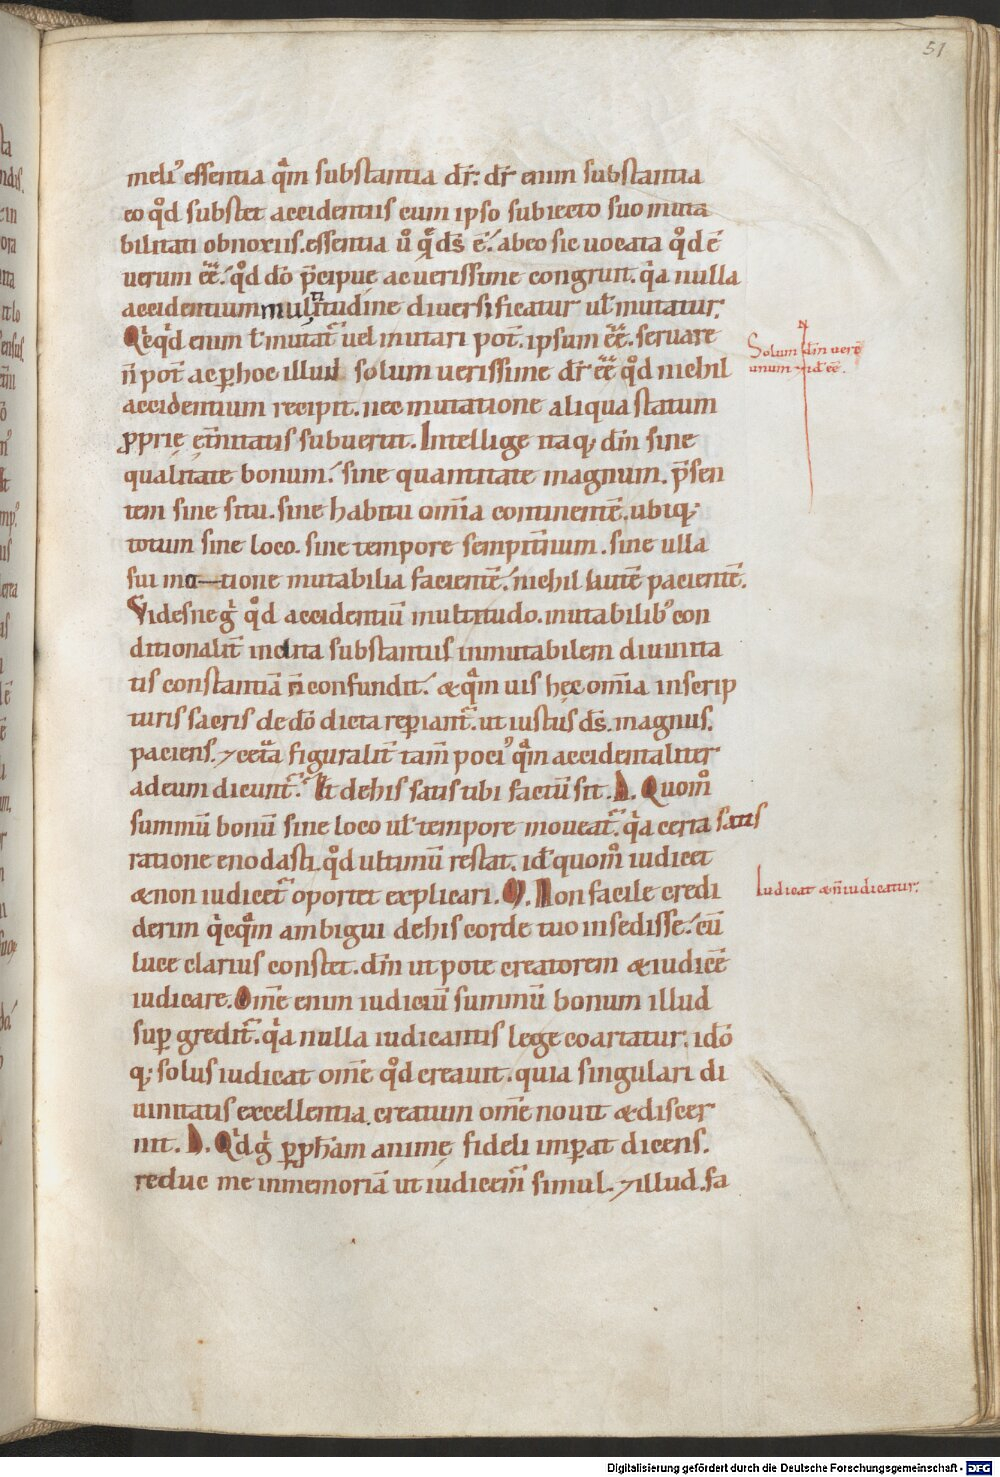 51
meli᾽ essentia qͣm substantia dr̄. dr̄ enim substantia
eo qͦd substet accidentiis cum ipso subiecto suo muta
bilitati obnoxiis. essentia ů q̄ ds̄ ē. ab eo sic uocata qͦd ē
uerum ēē. qͦd dō p̄cipue ac uerissime congruit. qͥa nulla
accidentium multitudine diuersificatur ul̄ mutatur.
Qͥcqͥd enim ł mutat̄ uel mutari pot̄. ipsum ēē. seruare
n̄ pot̄ ac ꝑ hoc illud solum uerissime dr̄ ēē qͦd nichil
accidentium recipit. nec mutatione aliqua statum
ꝓprię et̄nitatis subuertit. Intellige itaq; dn̄m sine
qualitate bonum. sine quantitate magnum. p̄sen
tem sine situ. sine habitu om̄ia continentē. ubiq;
totum sine loco. sine tempore sempit̄num. sine ulla
sui mutatione mutabilia facientē. nichil autē pacientē.
Videsne gͥ qͦd accidentiū multitudo. mutabilib᾽ con
ditionalit̄ inclita substantiis inmutabilem diuinita
tis constantiā n̄ confundit. & qͣm uis hęc om̄ia in scrip
turis sacris de dō dicta reꝑiant̄. ut iustus ds̄. magnus.
paciens. ⁊ cet̄a figuralit̄ tam̄ poci᾽ qͣm accidentaliter
ad eum dicunt̄. Et de his satis tibi factū sit. D. Quom̊
summū bonū sine loco ul̄ tempore moueat̄. qͥa certa satis
ratione enodasti. qͦd ultimū restat. id̄ quom̊ iudicet
& non iudicet̄ oportet explicari. M. Non facile credi
derim qͥcqͣm ambigui de his corde tuo insedisse. cū
luce clarius constet. dn̄m utpote creatorem & iudicē
iudicare. Om̄e enim iudiciū summū bonum illud
suꝑ gredit̄. qͥa nulla iudicantis lege coartatur. idō
q; solus iudicat om̄e qͦd creauit. quia singulari di
uinitatis excellentia. creatum om̄e nouit & discer
nit. D. Qͥd gͥ ꝑ ꝓph̄am animę fideli imꝑat dicens.
reduc me in memoriā ut iudicem̄ simul. ⁊ illud. fa
N
Solum dn̄m uere
unum ⁊ id̄ ēē.
Iudicat & n̄ iudicatur.
Digitalisierung gefördert durch die Deutsche Forschungsgemeinschaft - DFG